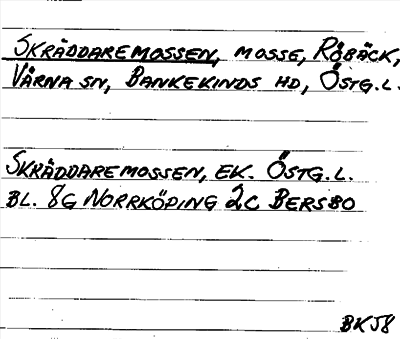 SKRÄDDAREMOSSEN, MOSSE, RÖBÄCK,
VÅRNA SN, BANKEKINDS HD, ÖSTG.L.
SKRÄDDAREMOSSEN, EK. ÖSTG.L.
BL. 8G NORRKÖPING 2C BERSBO
BKJ8